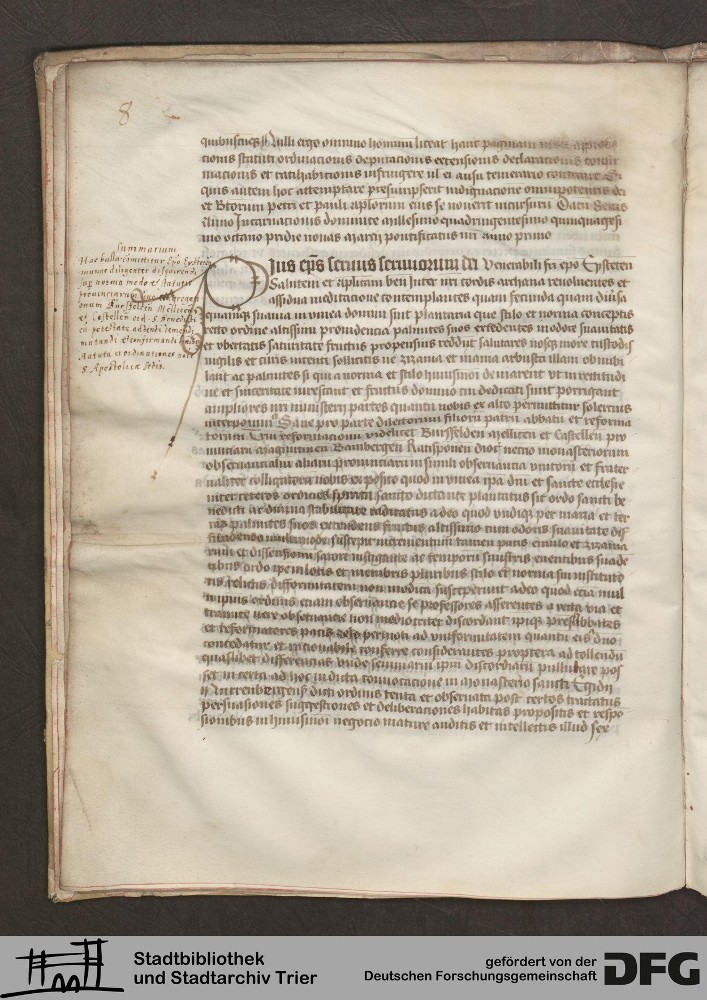 8
quibuscunq; Nulli ergo omnino hominum liceat hanc paginam nostre aproba
cionis statuti ordinacionis deputacionis extensionis declaracionis confir
macionis et ratihabicionis infringere vl ei ausu temerario contraire Si
quis autem hoc attemptare presumpserit indignacione omnipotentis dei
et Btorum petri et pauli aplorum eius se noverit incursuru Datu Senis
Anno Incarnacionis dominice Millesimo quadringentesimo quinquagesi
mo octavo pridie nonas Marcij pontificatus nri anno primo
Summarium
Hac bulla comittitur Epo Eysteten
manue diligenter
sup norma modo et statutis
provinciarum
onum Bursfelden Mellicen
et Castellen ord. S. Benedicti
cu potestate addendi demendi
mutandi et confirmandi
statuta et ordinationes
S. Apostolicæ Sedis.
Pius eps servus servuorum dei Venerabili fri epo Eysteten
Salutem et aplicam ben Inter nri cordis archana revolventes et
assidua meditacione contemplantes quam fecunda quam diusa
quamq; suavia in vinea domini sint plantaria que stilo et norma conceptis
recto ordine altissimi providencia palmites suos extendentes in odore suavitatis
et vbertatis saturitate fructus propensius reddut salutares nosq; more custodis
vigilis et cuius intenti sollicitis ne zizania et inania arbusta illam obnubi
lant ac palmites si qui a norma et stilo huiusmoi deviarent vt in rectitudi
ne et sinceritate virescant et fructus domino cui dedicati sunt porrigant
ampliores nri ministerij partes quantu nobis ex alto permittitur solercius
interponim Sane pro parte dilectorum filiorum patru abbatu et reforma
torum Triu reformacionu videlicet Burssfelden Melliten et Castellen pro
vinciaru Maguntinen Bambergen Ratisponen dioc necno monasteriorum
observancialiu aliaru provinciaru in simili observancia vnitoru et frater
naliter colligatoru nobis exposito quod in vinea ipa dni et sancte ecclesie
inter ceteros ordines spiritu sancto dictante plantatus sit ordo sancti be
nedicti ac divina stabilitate radicatus adeo quod vndiq; per maria et ter
ras palmites suos extendens fructus altissimo cum odoris suavitate dif
fundendo multimode suscepit incrementum tamen pacis emulo et zizania
rum et dissensionu satore instigante ac temporu sinistris eventibus suade
tibus ordo ipe in locis et membris pluribus stilo et norma sui instituto
ris relictis difformitatem non modica susceperunt adeo quod ecia mul
ti ipius ordinis etiam observancie se professores asserentes a recta via et
tramite vere observancie non mediocriter discordant ipiq; presulabbates
et reformatores pacis zelo permoti ad vniformitatem quantu eis dno
concedatur et racionabile conferre considerantes propterea ad tollendu
quaslibet differencias vnde seminaria ipm discordiaru pullulare pos
set in certa ad hoc indicta convocacione in Monasterio sancti Egidii
in Nurrenbergensi dicti ordinis tenta et observata post certos tractatus
persuasiones suggestiones et deliberaciones habitas propositis et respo
sionibus in huiusmoi negocio mature auditis et intellectis illud fere
Stadtbibliothek
und Stadtarchiv Trier
gefördert von der
Deutschen Forschungsgemeinschaft
DFG